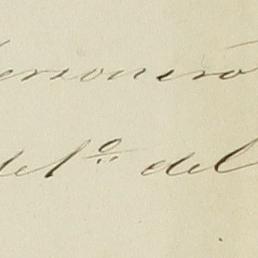 Personero
del 1º del